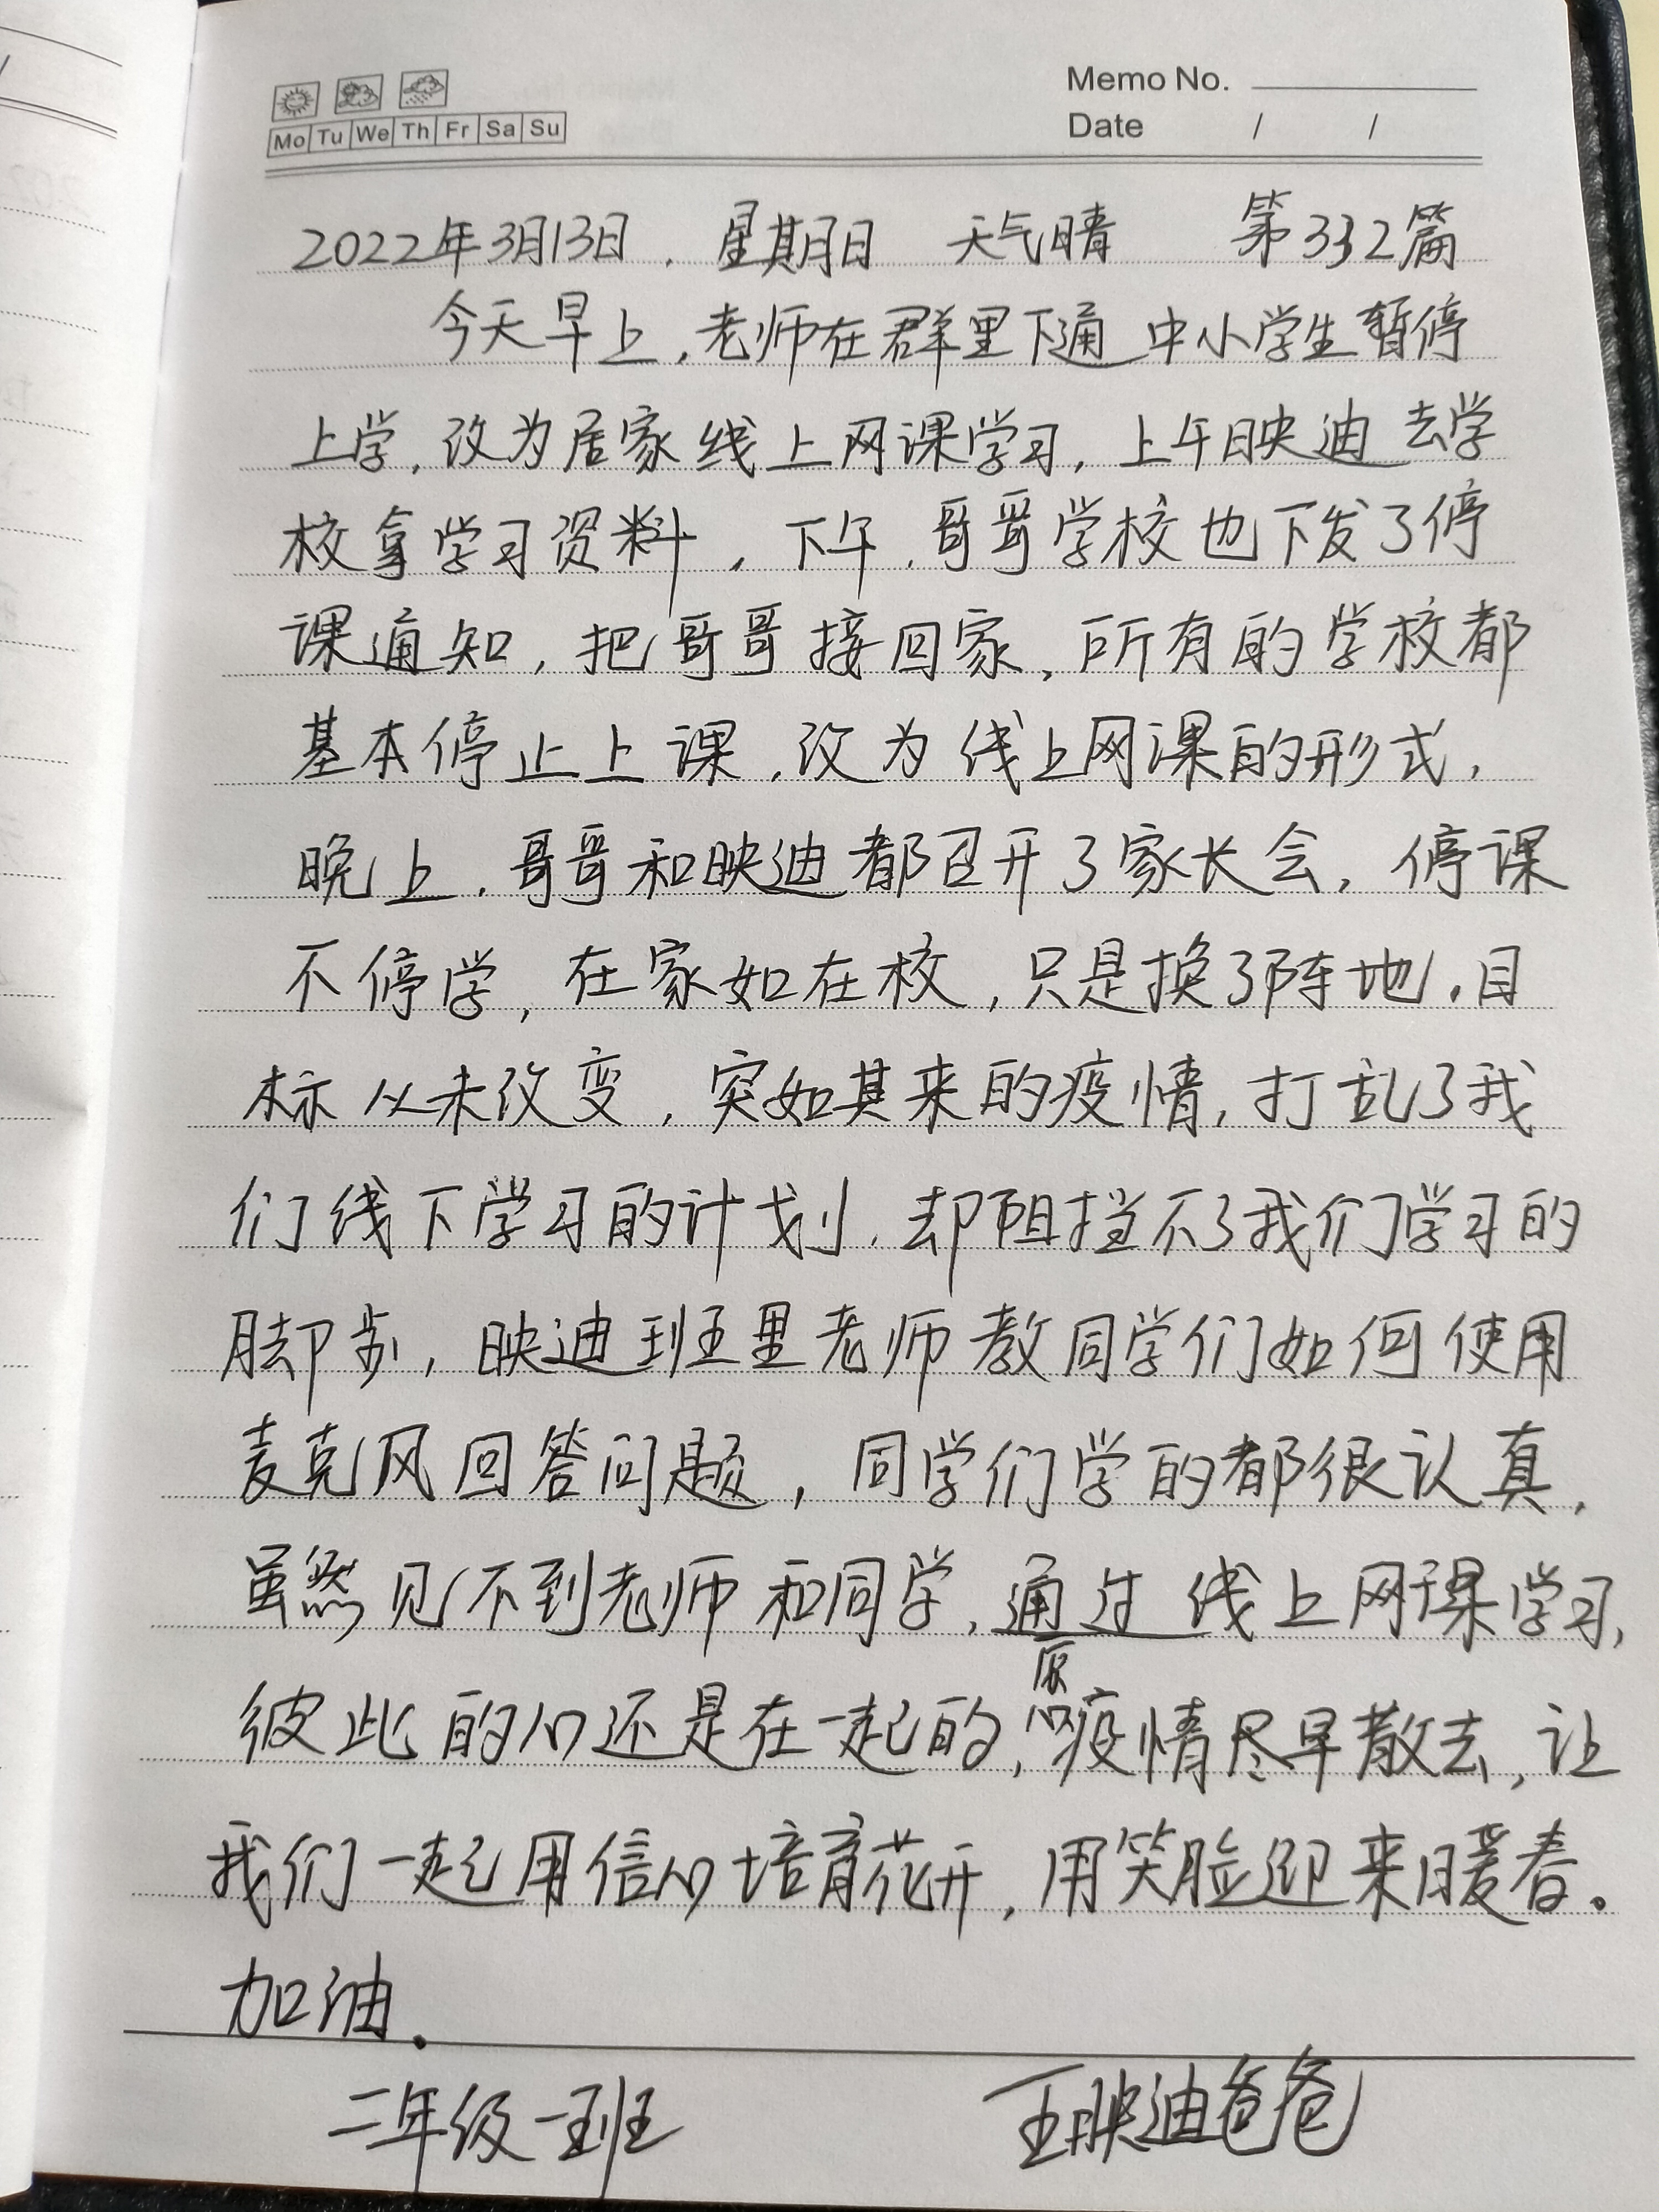 Memo No.
Mo Tu We Th Fr Sa Su
Date / /
2022年3月13日. 星期日 天气晴 第332篇
今天早上,老师在群里下通中小学生暂停
上学,改为居家线上网课学习,上午映迪去学
校拿学习资料,下午,哥哥学校也下发了停
课通知,把哥哥接回家,所有的学校都
基本停止上课,改为线上网课的形式,
晚上,哥哥和映迪都召开了家长会,停课
不停学,在家如在校,只是换了阵地,目
标从未改变,突如其来的疫情,打乱了我
们线下学习的计划,却阻挡不了我们学习的
脚步,映迪班里老师教同学们如何使用
麦克风回答问题,同学们学的都很认真,
虽然见不到老师和同学,通过线上网课学习,
彼此的心还是在一起的,愿疫情尽早散去,让
我们一起用信心培育花开,用笑脸迎来暖春。
加油.
二年级一班 王映迪爸爸